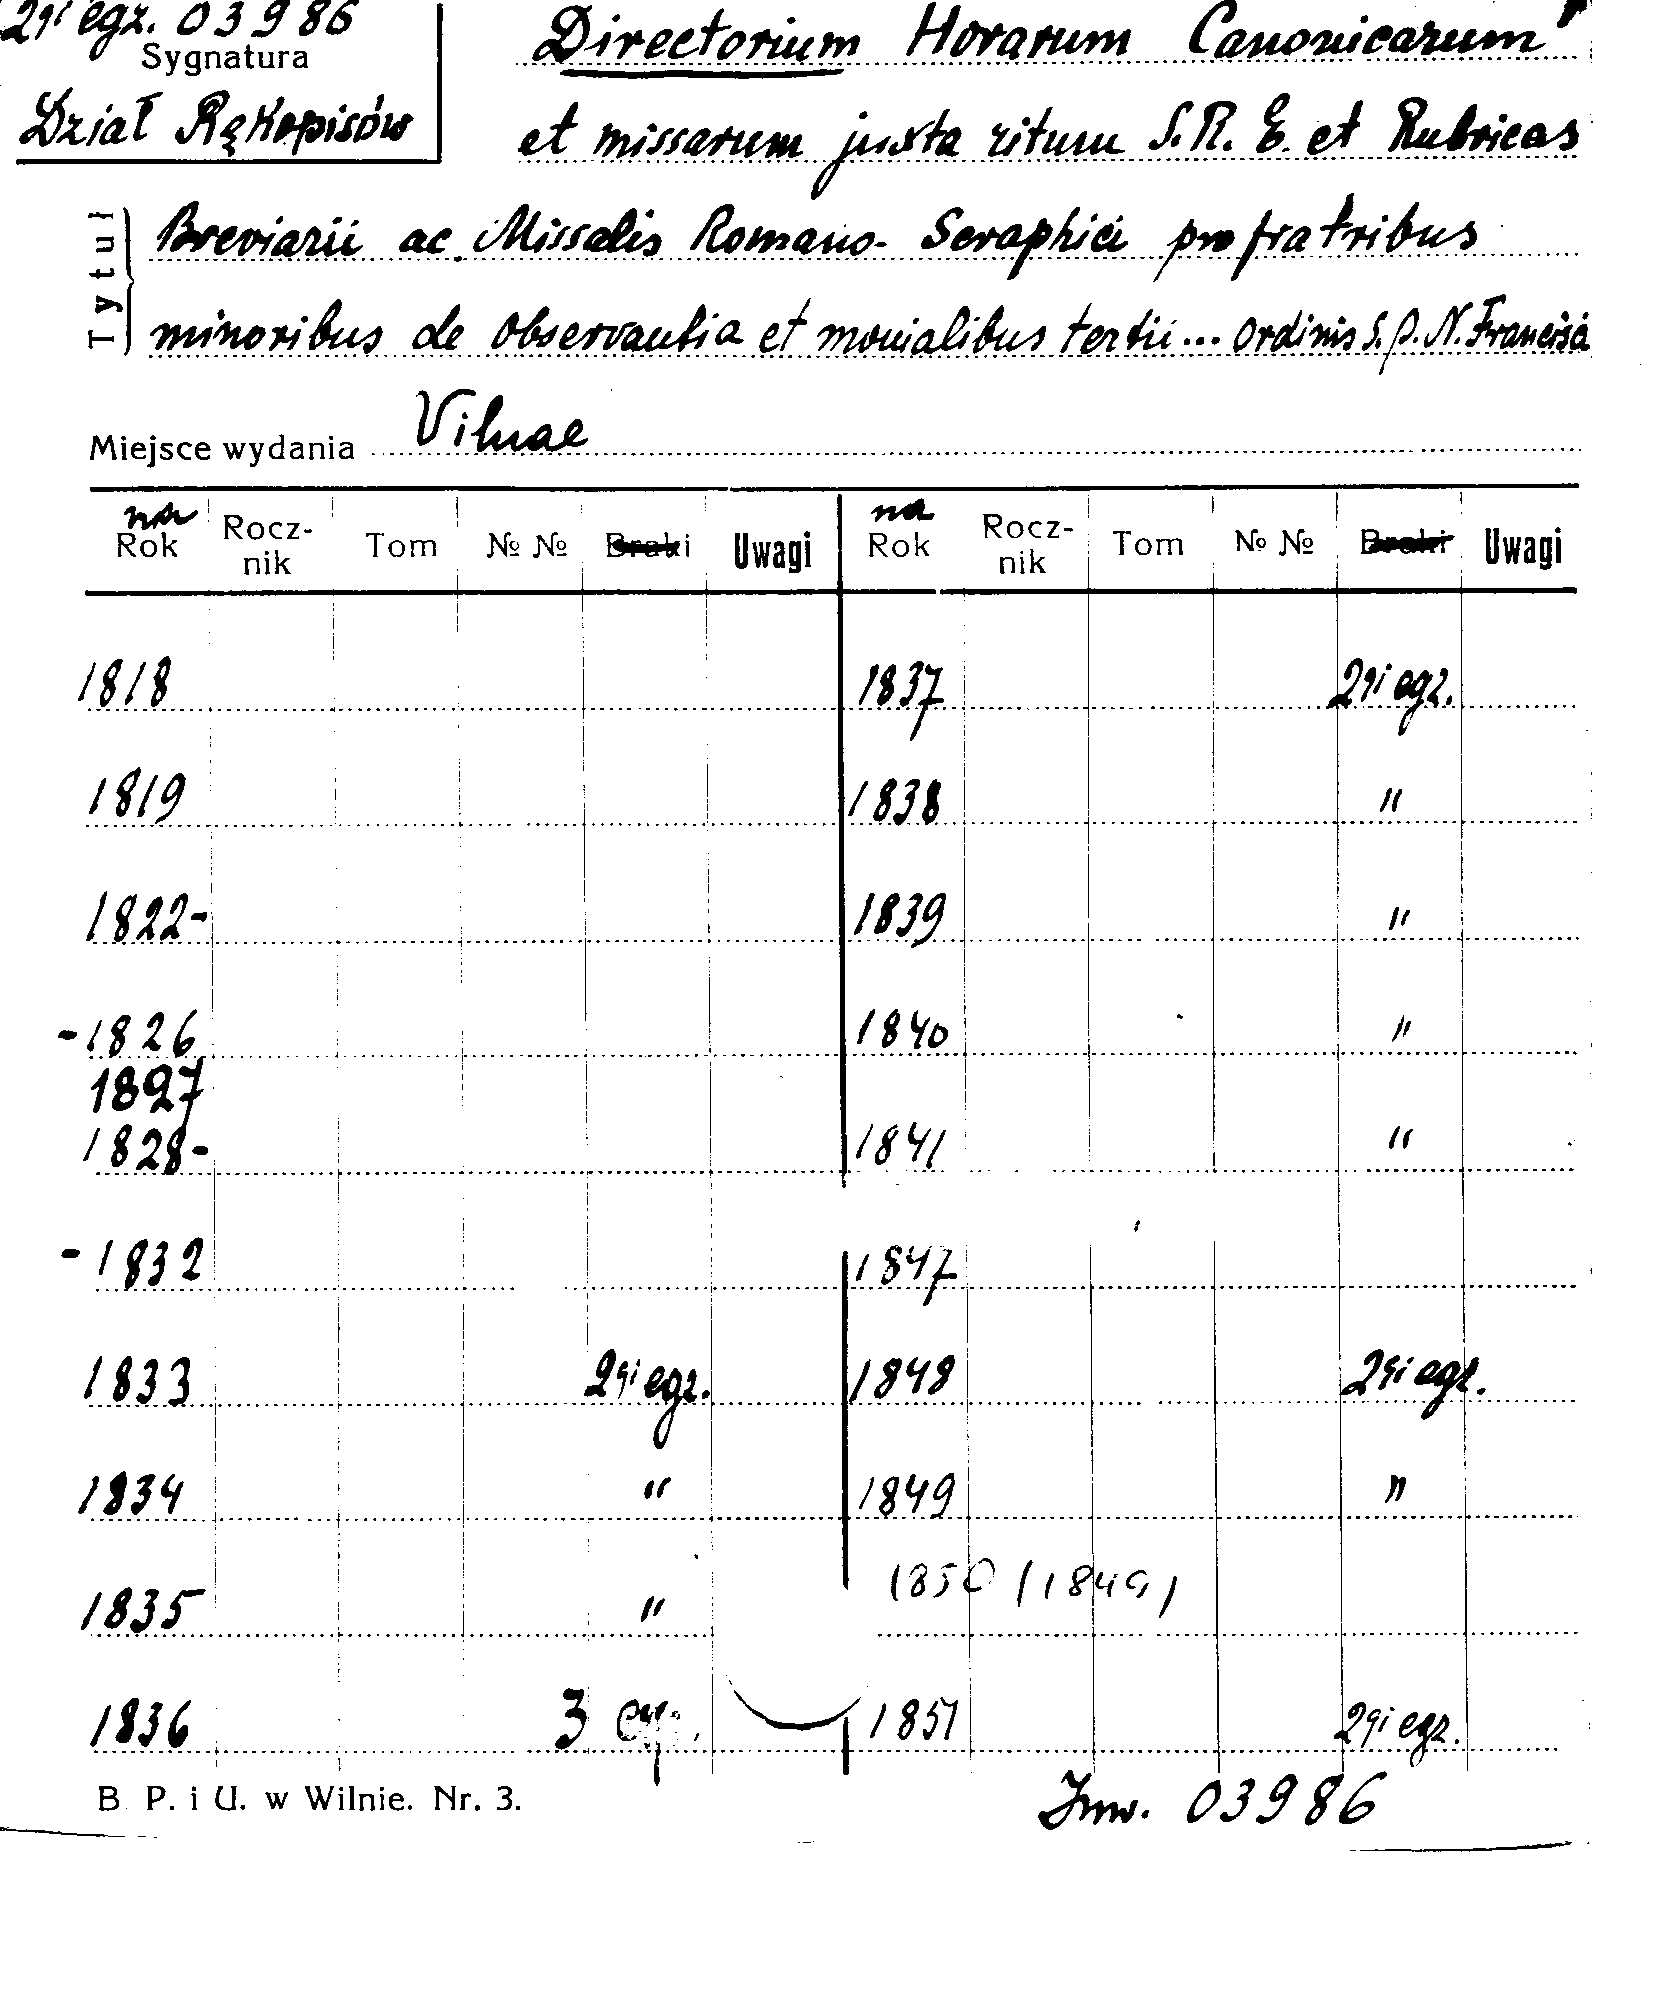 2gi egz. 03986
Sygnatura
Dział Rękopisów
Directorium Horarum Canonicarum
et missarum juxta ritum S. R. E. et Rubricas
Tytuł
Breviarii ac Missalis Romano-Seraphici pro fratribus
minoribus de Observantia et monialibus tertii... Ordinis S. P. N. Francisci
Miejsce wydania Vilnae
na Rok Rocz-nik Tom № № Braki Uwagi na Rok Rocz-nik Tom № № Braki Uwagi
1818 1837 2gi egz.
1819 1838 "
1822- 1839 "
-1826 1840 "
1827
1828- 1841 "
-1832 1847
1833 2gi egz. 1848 2gi egz.
1834 " 1849 "
1835 " 1850 (1849)
1836 3 egz. 1851 2gi egz.
B. P. i U. w Wilnie. Nr. 3.
Inw. 03986